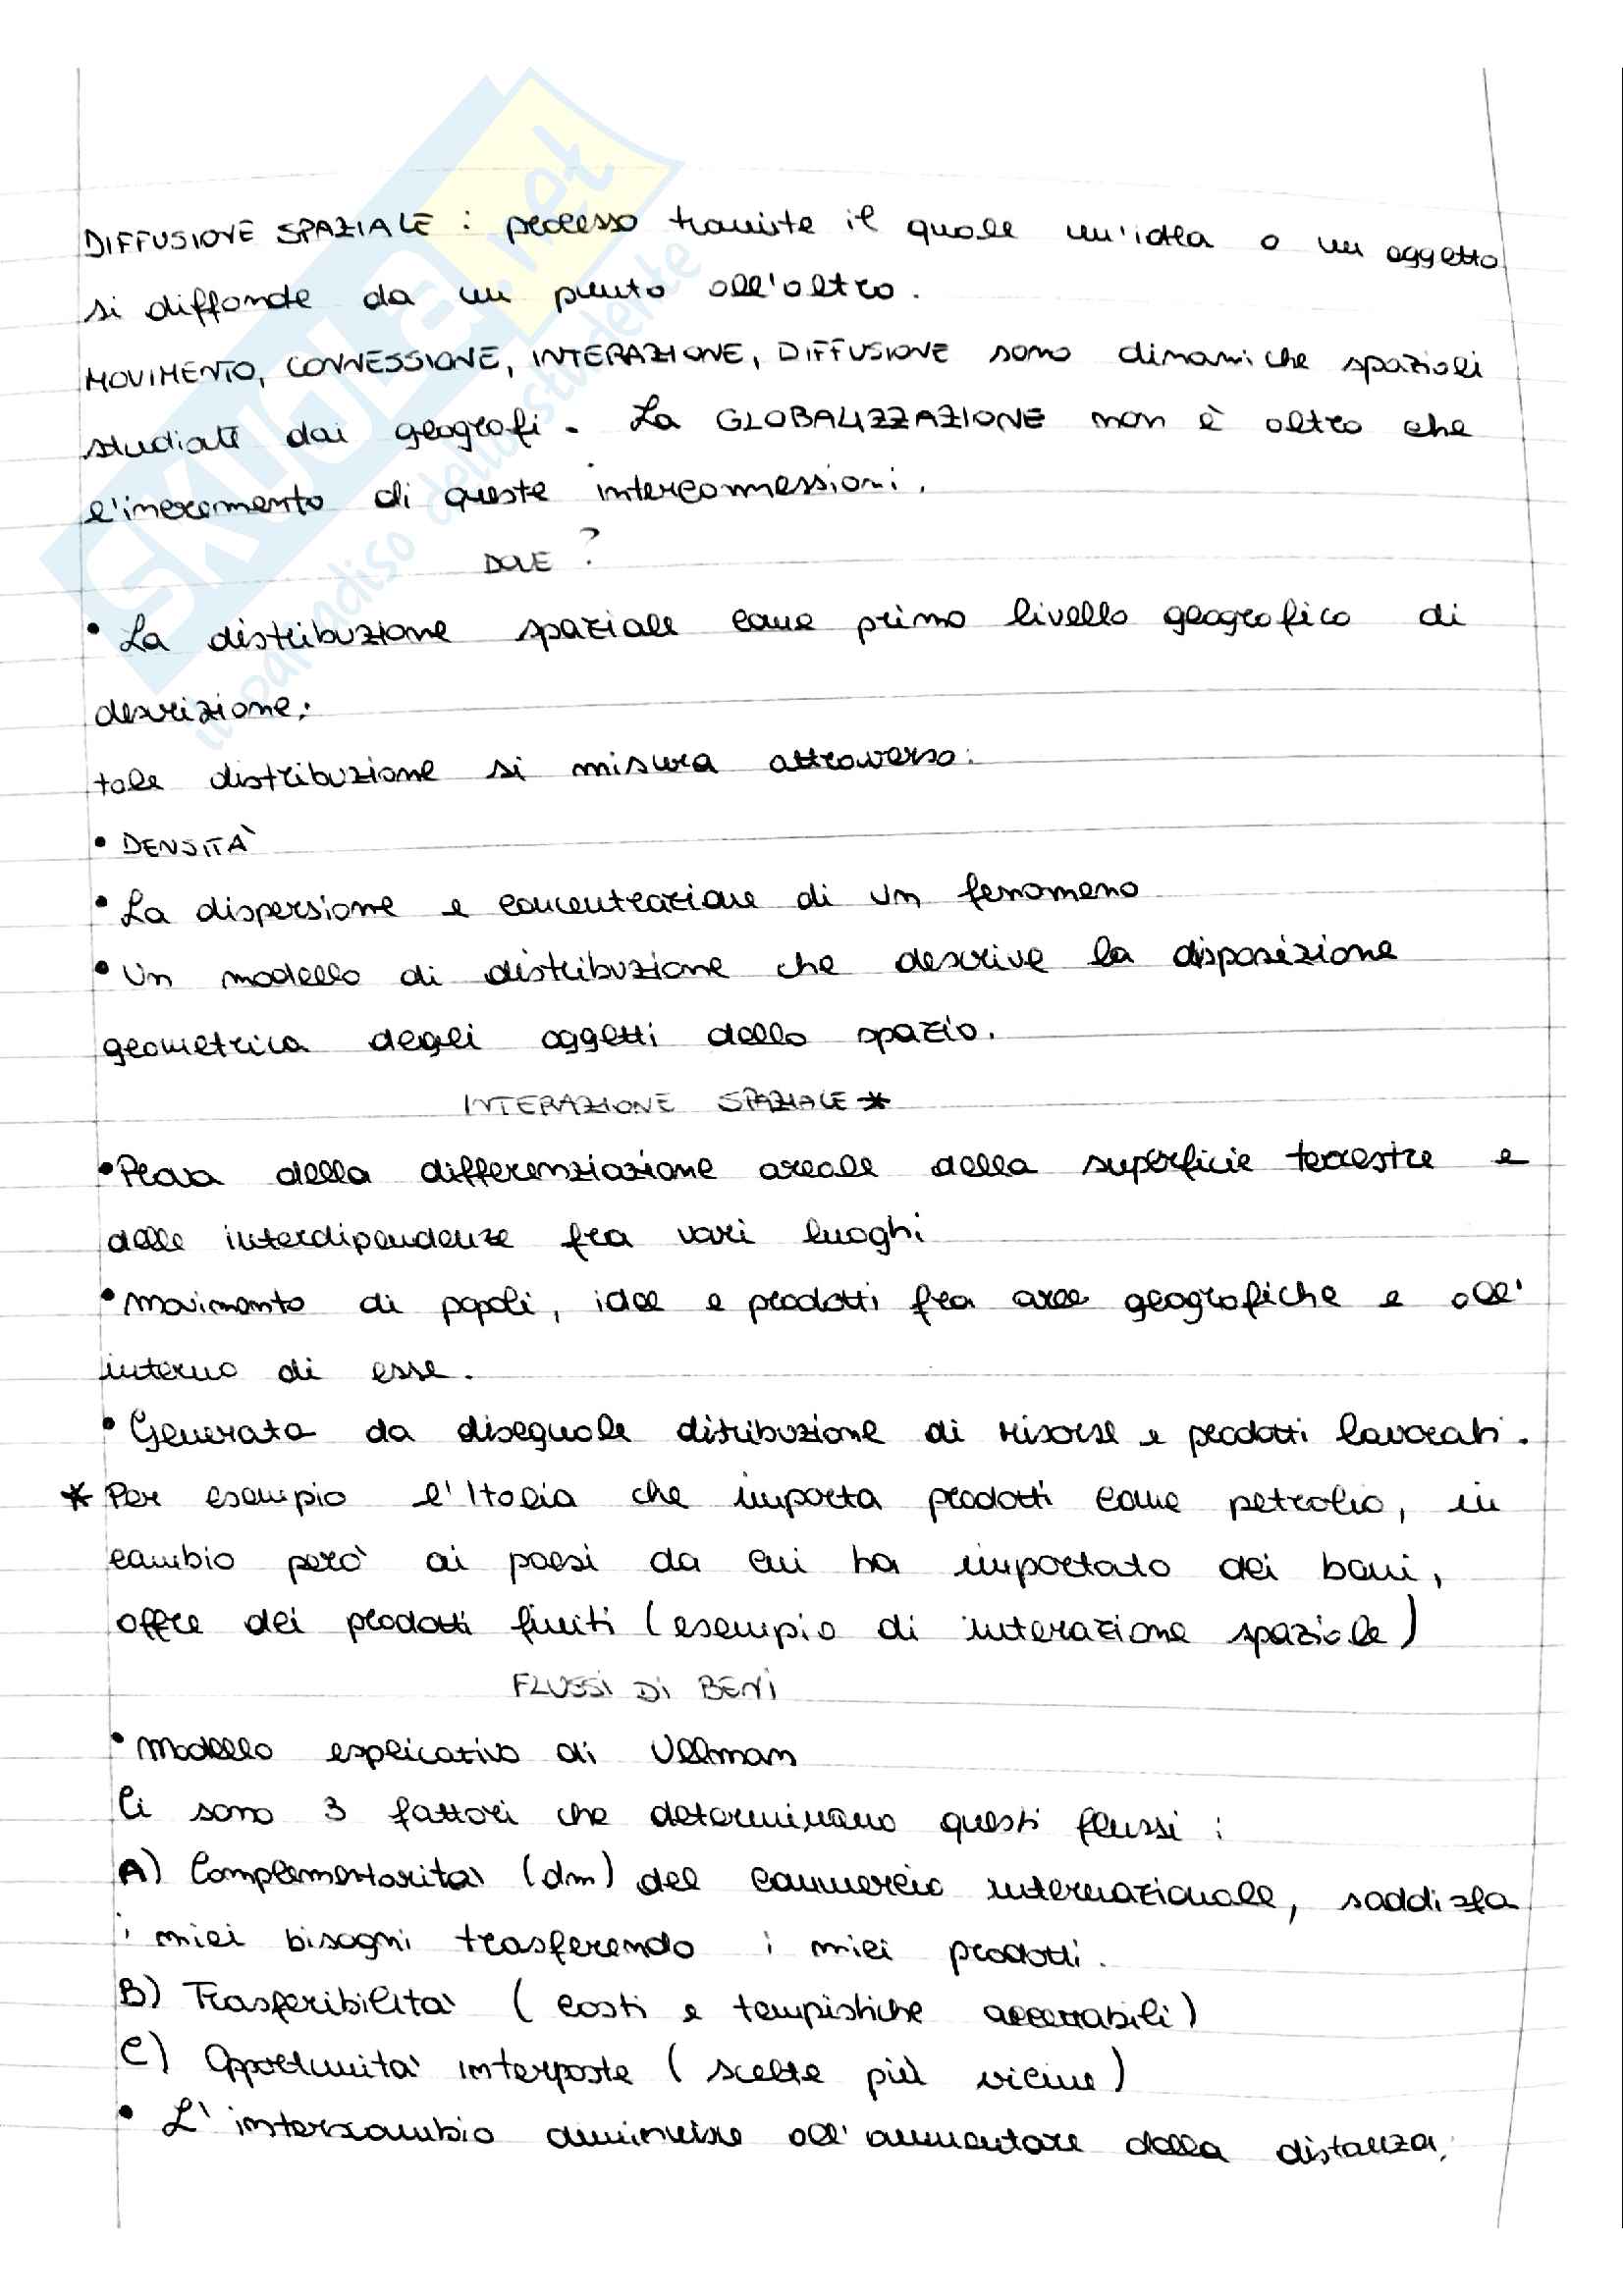 DIFFUSIONE SPAZIALE : processo tramite il quale un'idea o un oggetto
si diffonde da un punto all'altro.
MOVIMENTO, CONNESSIONE, INTERAZIONE, DIFFUSIONE sono dinamiche spaziali
studiate dai geografi. La GLOBALIZZAZIONE non è altro che
l'incremento di queste interconnessioni.
DOVE ?
• La distribuzione spaziale come primo livello geografico di
descrizione;
tale distribuzione si misura attraverso:
• DENSITÀ
• La dispersione e concentrazione di un fenomeno
• Un modello di distribuzione che descrive la disposizione
geometrica degli oggetti dello spazio.
INTERAZIONE SPAZIALE *
• Prova della differenziazione areale della superficie terrestre e
delle interdipendenze fra vari luoghi
• Movimento di popoli, idee e prodotti fra aree geografiche e all'
interno di esse.
• Generata da diseguale ditribuzione di risorse e prodotti lavorati.
* Per esempio l'Italia che importa prodotti come petrolio, in
cambio però ai paesi da cui ha importato dei beni,
offre dei prodotti finiti (esempio di interazione spaziale)
FLUSSI DI BENI
• Modello esplicativo di Ullman
Ci sono 3 fattori che determinano questi flussi :
A) Complementarità (dm) del commercio internazionale, soddisfa
i miei bisogni trasferendo i miei prodotti.
B) Trasferibilità ( costi e tempistiche accettabili)
C) Opportunità interposte ( scelte più vicine)
• L'interscambio diminuisce all'aumentare della distanza.
SKUOLA.net
il paradiso dello studente